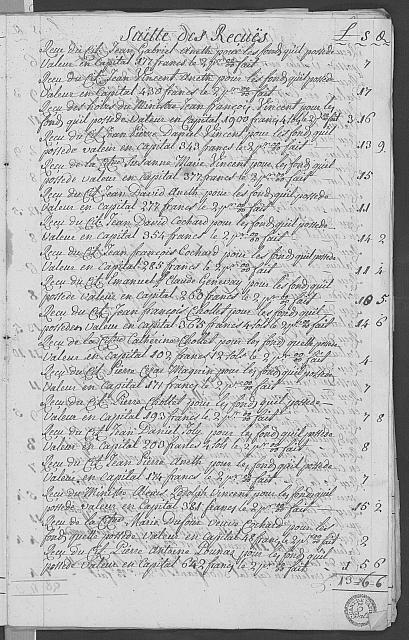 Suitte des Recuës £ s d
Recu du Cit. Jean Gabriel Aneth pour les fond qu'il possede
Valeur en Capital 177 francs le 2 pr ‰ fait — 7
Recu du Cit. Jean Vincent Aneth pour les fond qu'il possede
Valeur en Capital 430 francs le 2 pr ‰ fait — 17
Recu des hoirs du Ministre Jean François Vincent pour les
fond qu'il possede Valeur en Capital 1900 francs 4 fols le 2 pr ‰ fait 3 16
Recu du Cit. Jean Pierre Daniel Vincent pour les fond qu'il
possede valeur en Capital 343 francs le 2 pr ‰ fait — 13 9
Recu de la Cit. Susanne Marie Vincent pour les fond qu'il
possede valeur en Capital 377 francs le 2 pr ‰ fait — 15
Recu du Cit. Jean David Aneth pour les fond qu'il possede
Valeur en Capital 277 francs le 2 pr ‰ fait — 11
Recu du Cit. Jean David Cochard pour les fond qu'il possede
Valeur en Capital 354 francs le 2 pr ‰ fait — 14 2
Recu du Cit. Jean françois Cochard pour les fond qu'il possede
Valeur en Capital 285 francs le 2 pr ‰ fait — 11 4
Recu du Cit. Emanuel Claude Genevay pour les fond qu'il
possede valeur en Capital 263 francs le 2 pr ‰ fait 10 5
Recu du Cit. Jean françois Chollet pour les fond qu'il
possede valeur en Capital 365 francs 4 fols le 2 pr ‰ fait — 14 6
Recu de la Cit. Catherine Chollet pour les fond quelle possede
Valeur en Capital 102 francs 12 fols le 2 pr ‰ fait — 4
Recu du Cit. Pierre Cesar Magnin pour les fond qu'il possede
Valeur en Capital 171 francs le 2 pr ‰ fait — 7
Recu du Cit. Pierre Chollet pour les fond qu'il possede
Valeur en Capital 193 francs le 2 pr ‰ fait — 7 8
Recu du Cit. Jean Daniel pour les fond qu'il possede
Valeur en Capital 203 francs 4 fols le 2 pr ‰ fait 8
Recu du Cit. Jean Pierre Aneth pour les fond qu'il possede
Valeur en Capital 174 francs le 2 pr ‰ fait — 7
Recu du Ministre Alexis Vincent pour les fond qu'il
possede valeur en Capital 381 francs le 2 pr ‰ fait — 15 2
Recu de la Marie Dufour Veuve Cochard pour les
fond quelle possede Valeur en Capital 48 francs le 2 pr ‰ fait 2
Recu du Cit. Pierre Antoine pour les fond qu'il
possede valeur en Capital 642 francs le 2 pr ‰ fait — 1 5 6
13 6 6